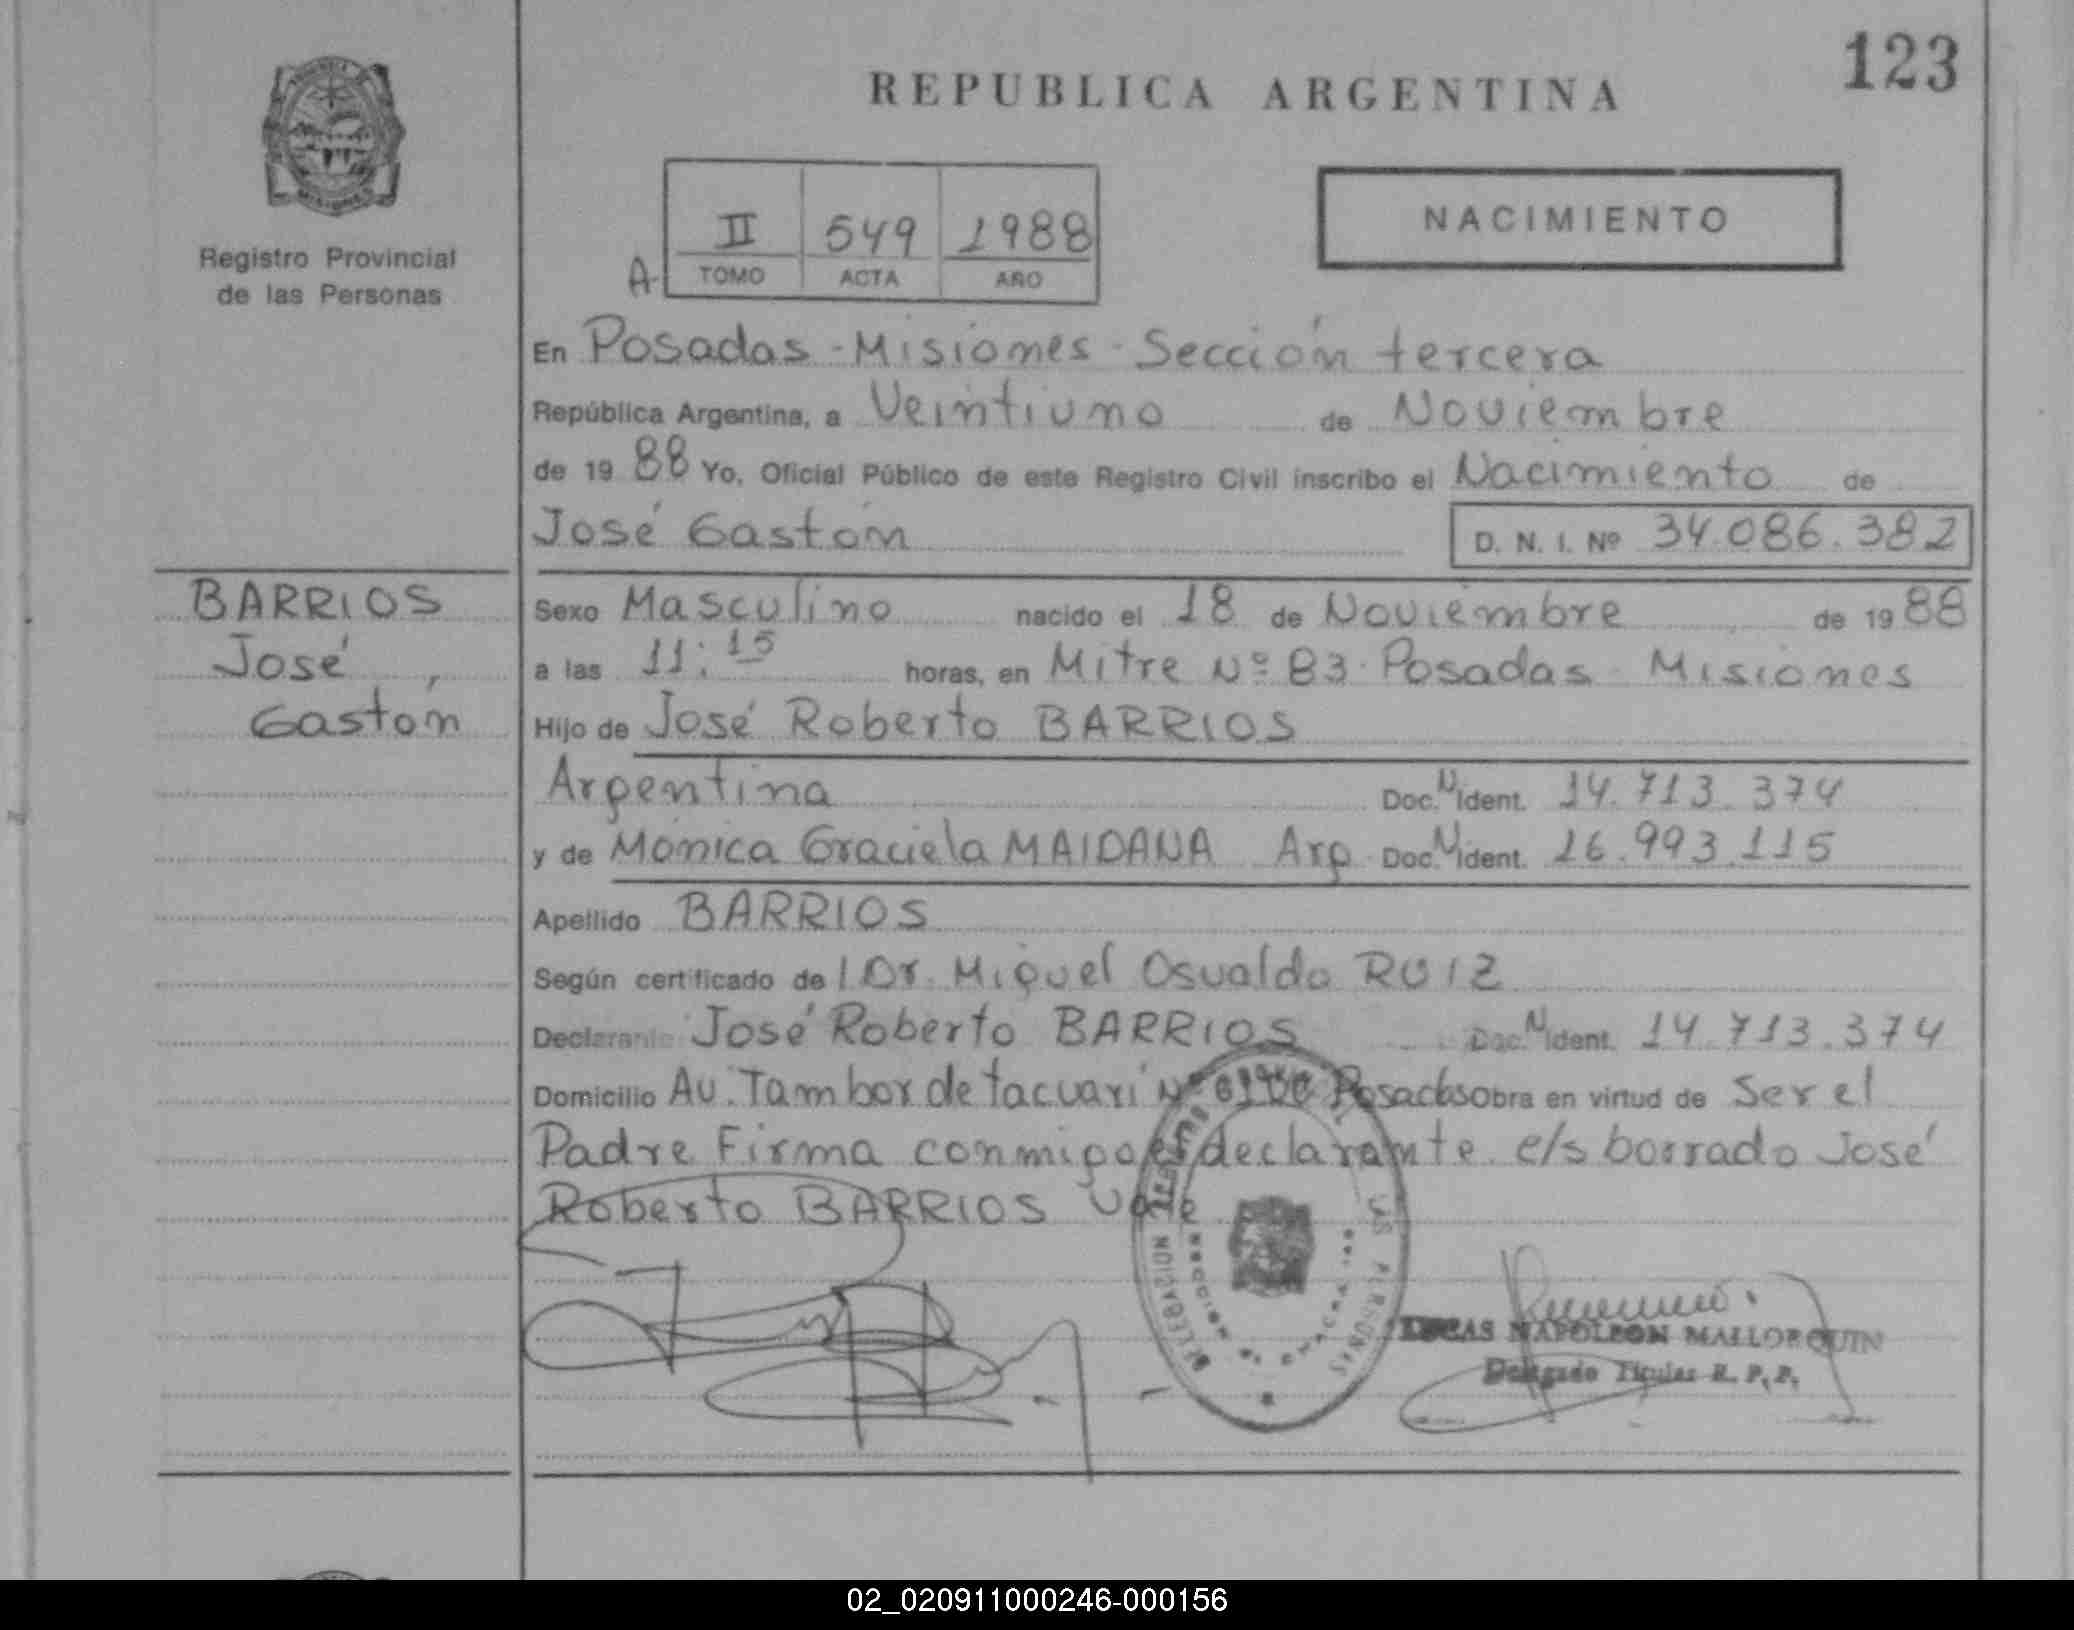 123
REPUBLICA ARGENTINA
Registro Provincial
de las Personas
II 549 1988
A- TOMO ACTA AÑO
NACIMIENTO
En Posadas - Misiones - Sección tercera
República Argentina, a Veintiuno de Noviembre
de 19 88 Yo, Oficial Público de este Registro Civil inscribo el Nacimiento de
José Gastón
D. N. I. Nº 34.086.382
BARRIOS
José,
Gastón
Sexo Masculino nacido el 18 de Noviembre de 19 88
a las 11:15 horas, en Mitre Nº 83 - Posadas - Misiones
Hijo de José Roberto BARRIOS
Argentina Doc. N Ident. 14.713.374
y de Mónica Graciela MAIDANA Arg. Doc. N Ident. 16.993.115
Apellido BARRIOS
Según certificado del Dr. Miguel Osvaldo RUIZ
Declarante José Roberto BARRIOS Doc. N Ident. 14.713.374
Domicilio Av. Tambor de tacuarí Nº Posadas Obra en virtud de Ser el
Padre Firma conmigo el declarante. e/s borrado José
Roberto BARRIOS Vale
LUCAS NAPOLEON MALLORQUIN
Delegado Titular R. P. P.
DELEGACION
SECCION
LAS PERSONAS
02_020911000246-000156